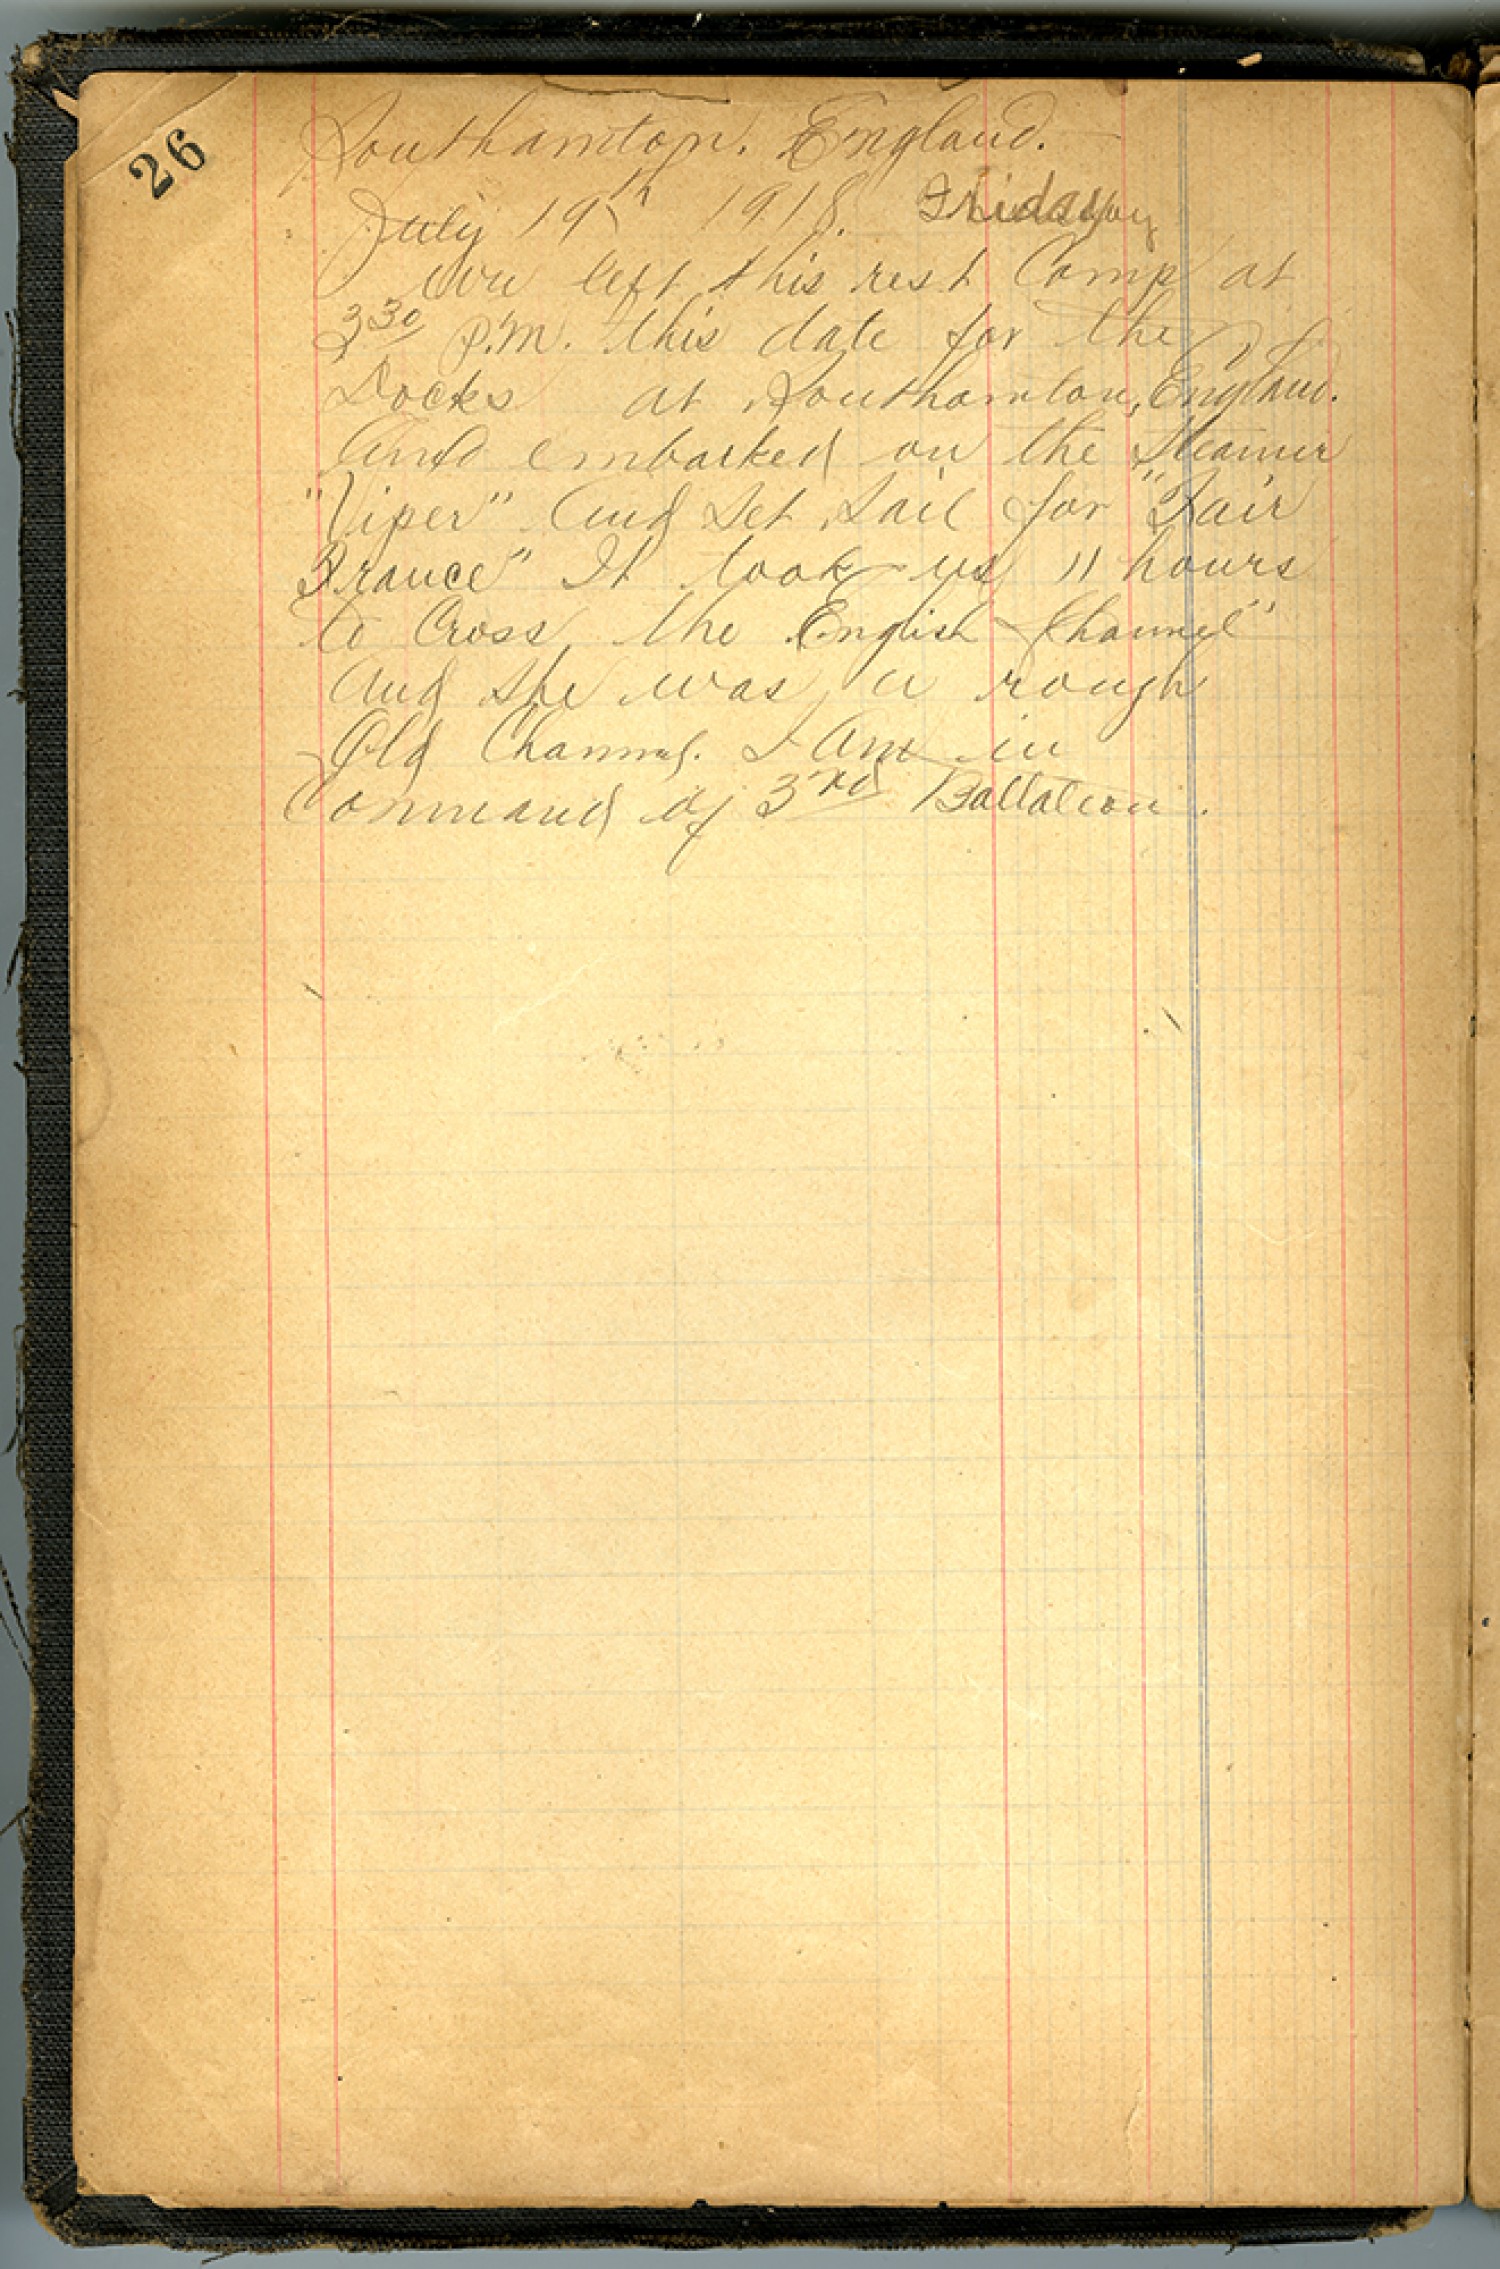 26
Southamton. England.
July 19th 1918. Friday
we left this rest Camp at
3 30 P.M. this date for the
Docks at Southamton, England.
And embarked on the Steamer
"Viper" And Set Sail for "Fair
France" It took us 11 hours
to Cross the English Channel"
And she was a rough
Old Channel. I Am in
Command of 3rd Battalion.